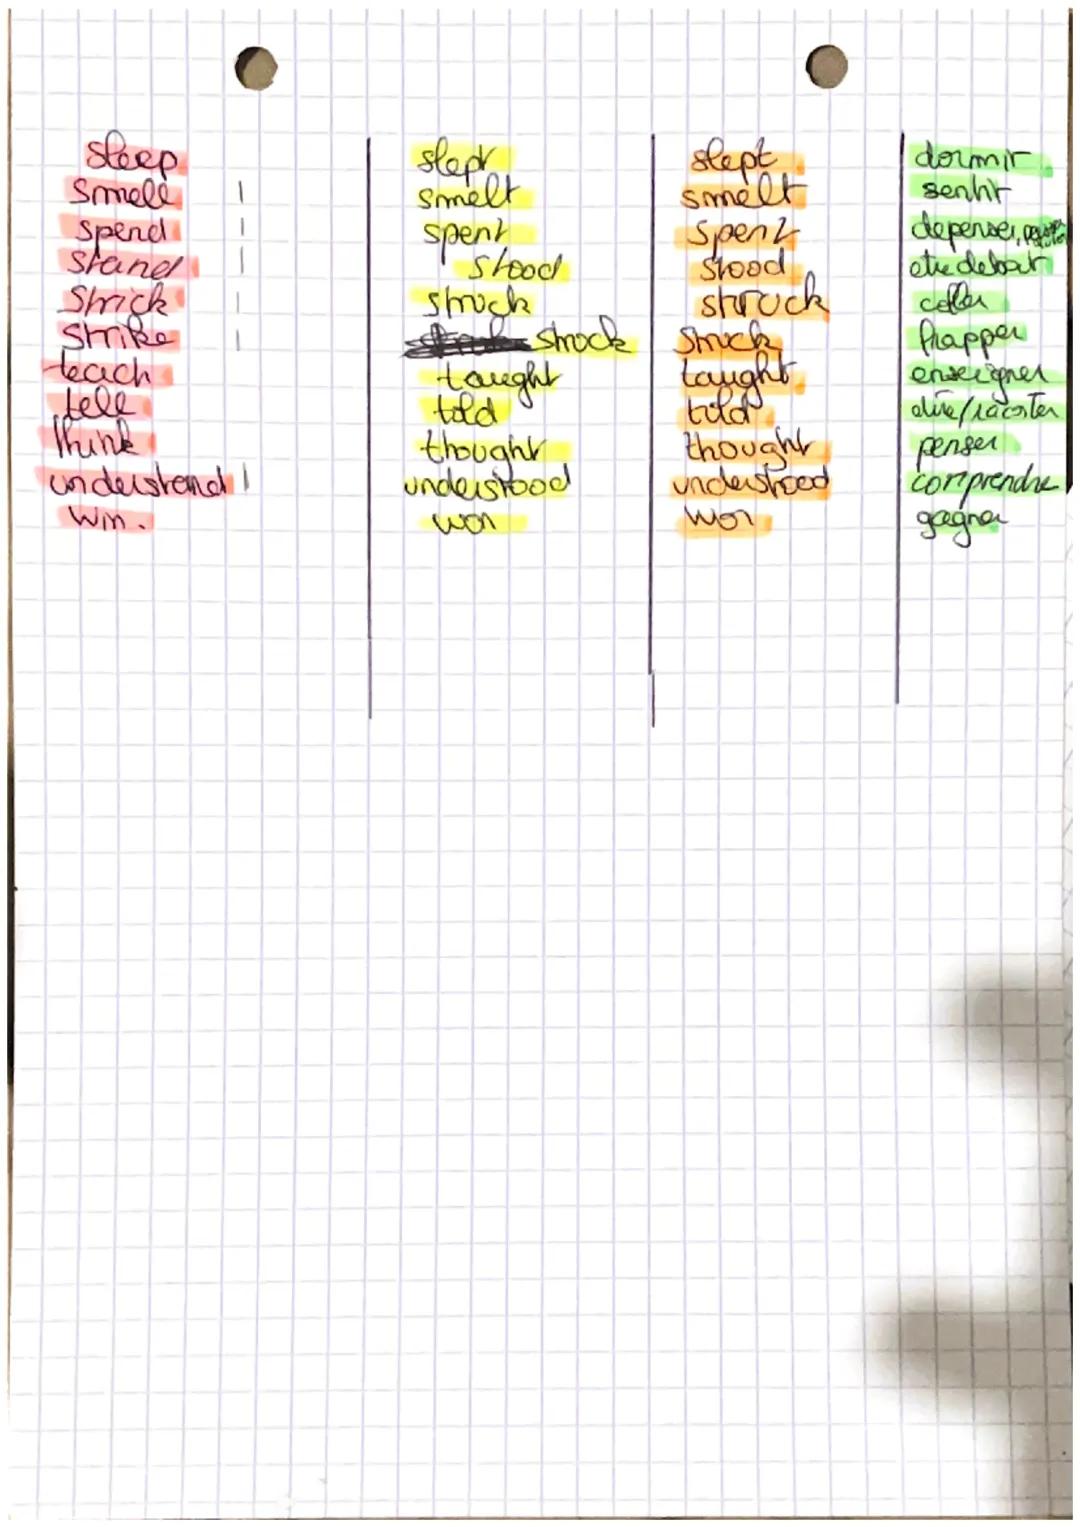 sleep slept slept dormir
smell smelt smelt sentir
spend spent spent depenser,
stand stood stood etre debout
strick struck struck coller
strike struck struck frapper
teach taught taught enseigner
tell told told dire/raconter
think thought thought penser
understand understood understood comprendre
win. won won gagner